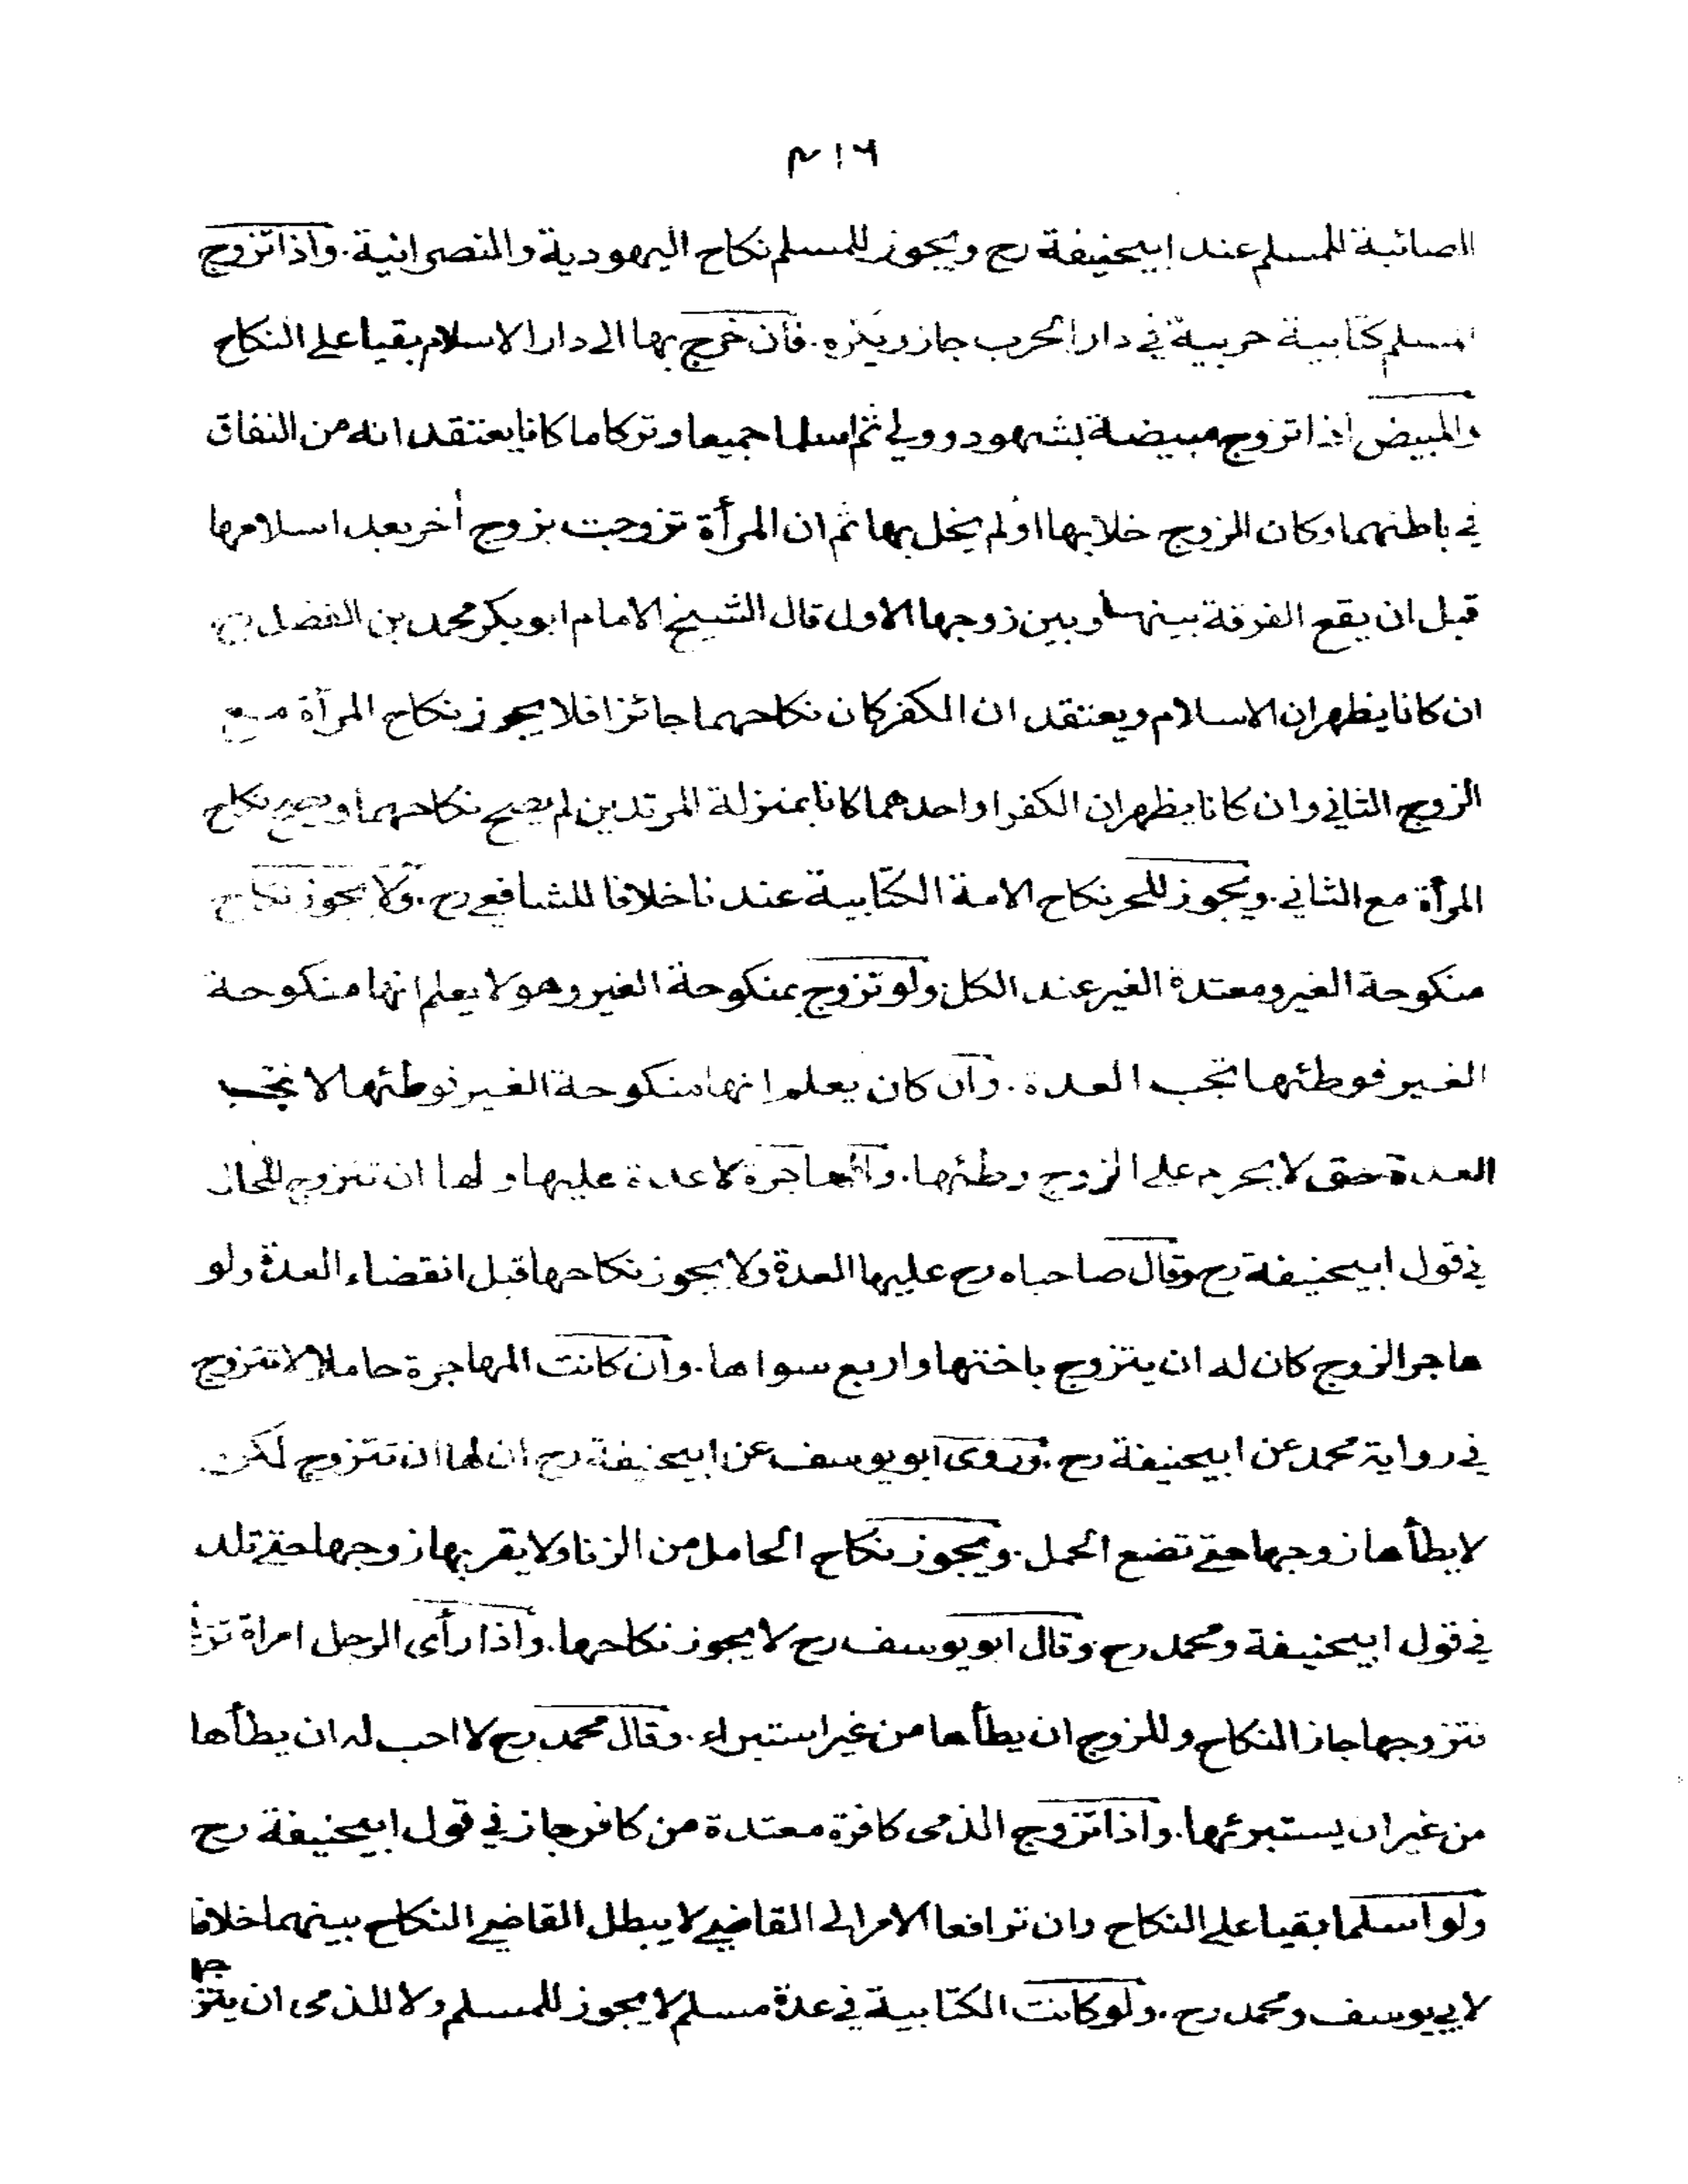 ٤١٦
الصائبة للمسلم عند ابيحنيفة رح ويجوز للمسلم نكاح اليهودية والنصرانية. واذا تزوج
مسلم كتابية حربية في دار الحرب جاز ويكره. فان خرج بها الى دار الاسلام بقيا على النكاح
والمبيض اذا تزوج مبيضة بشهود وولي ثم اسلما جميعا وتركا ما كانا يعتقد انه من النفاق
في باطنهما وكان الزوج خلا بها او لم يخل بها ثم ان المرأة تزوجت بزوج أخر بعد اسلامها
قبل ان يقع الفرقة بينها وبين زوجها الاول قال الشيخ الامام ابو بكر محمد بن الفضل رح
ان كانا يظهران الاسلام ويعتقد ان الكفر كان نكاحهما جائزا فلا يجوز نكاح المرأة مع
الزوج الثاني وان كانا يظهران الكفر او احدهما كانا بمنزلة المرتدين لم يصح نكاحهما ويصح نكاح
المرأة مع الثاني. ويجوز للحر نكاح الامة الكتابية عندنا خلافا للشافعي رح. ولا يجوز نكاح
منكوحة الغير ومعتدة الغير عند الكل. ولو تزوج بمنكوحة الغير وهو لا يعلم انها منكوحة
الغير فوطئها تجب العدة. وان كان يعلم انها منكوحة الغير فوطئها لا تجب
العدة حتى لا يحرم على الزوج وطئها. والمهاجرة لا عدة عليها ولها ان تتزوج للحال
في قول ابيحنيفة رح وقال صاحباه رح عليها العدة ولا يجوز نكاحها قبل انقضاء العدة ولو
هاجر الزوج كان له ان يتزوج باختها واربع سواها. وان كانت المهاجرة حاملا لا تتزوج
في رواية محمد عن ابيحنيفة رح. وروى ابو يوسف عن ابيحنيفة رح ان لها ان تتزوج لكن
لا يطأها زوجها حتى تضع الحمل. ويجوز نكاح الحامل من الزنا ولا يقربها زوجها حتى تلد
في قول ابيحنيفة ومحمد رح وقال ابو يوسف رح لا يجوز نكاحها. واذا رأى الرجل امراة تزنى
فتزوجها جاز النكاح وللزوج ان يطأها من غير استبراء. وقال محمد رح لا احب له ان يطأها
من غير ان يستبرئها. واذا تزوج الذمى كافرة معتدة من كافر جاز في قول ابيحنيفة رح
ولو اسلما بقيا على النكاح وان ترافعا الامر الى القاضي لا يبطل القاضي النكاح بينهما خلافا
لابي يوسف ومحمد رح. ولو كانت الكتابية في عدة مسلم لا يجوز للمسلم ولا للذمى ان يتزوجها